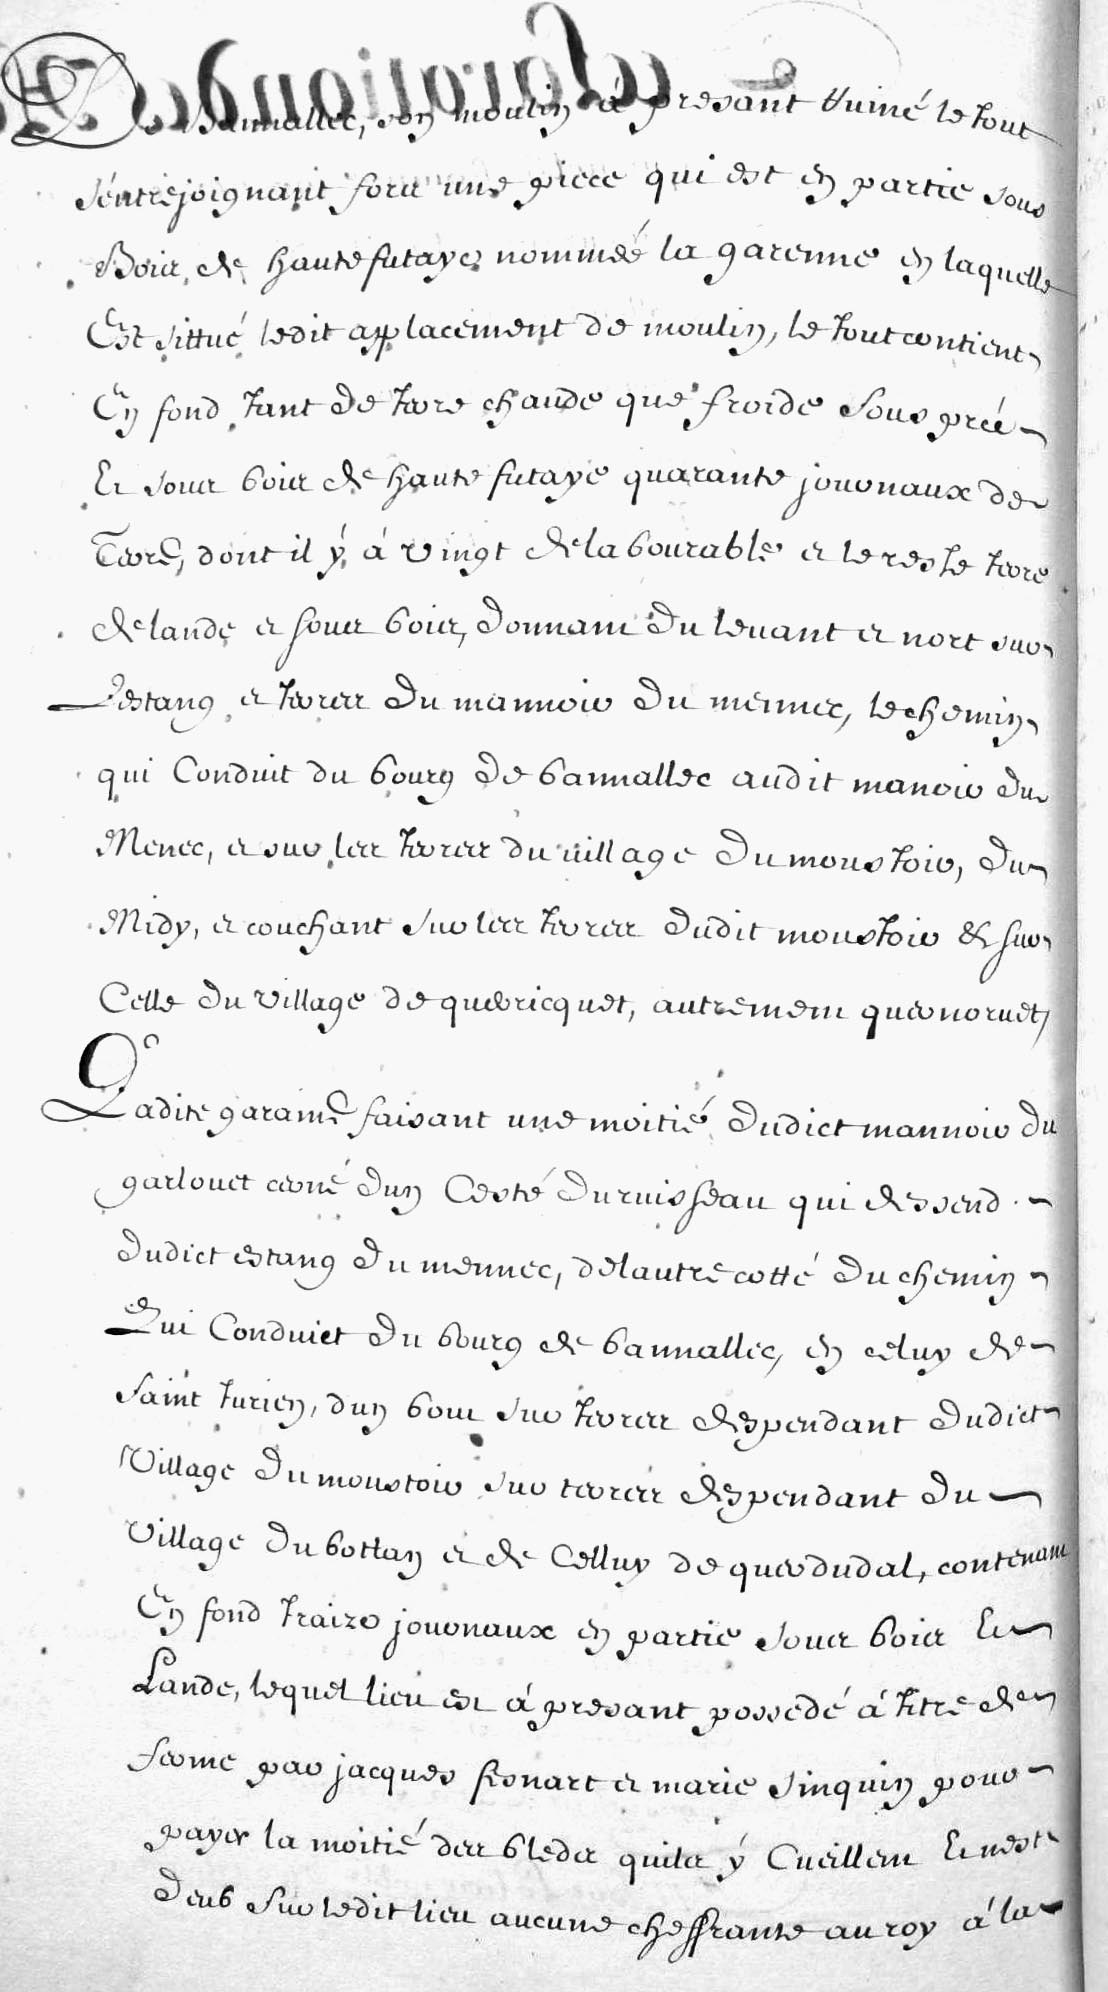 De Bannallec, son moulin à presant ruiné le tout
s'entrejoignant sous une piece qui est en partie sous
Bois de haute futaye nommée la garenne en laquelle
Est sittué ledit applacement de moulin, le tout contient
En fond tant de terre chaude que froide sous préé
Et sous bois de haute futaye quarante journaux de
Terre, dont il ý á vingt de labourable et le reste terre
de lande et sous bois, donnant du levant et nort sur
L'estang et terres du mannoir du mennec, le chemin
qui Conduit du bourg de bannallec audit manoir du
Menec, et sur les terres du village du moustoir, du
Midy, et couchant sur les terres dudit moustoir et sur
Celle du village de querricquet, autrement quernoruet,
Ladite garaine faisant une moitié dudict mannoir du
garlouet cerné d'un Costé du ruisseau qui dessend
dudict estang du mennec, de l'autre cotté du chemin
Qui Conduict du bourg de bannallec, en celuy de
saint turien, d'un bout sur terres despendant dudict
Village du moustoir sur terres despendant du
Village du bottan et de Celluy de querdudal, contenant
En fond traize journaux en partie sous bois Et
Lande, lequel lieu est á presant possedé á titre de
ferme par jacques fronart et marie sinquin pour
payer la moitié des bleds quils ý Cueillent Et n'est
deub sur ledit lieu aucune cheffrante au roy á la